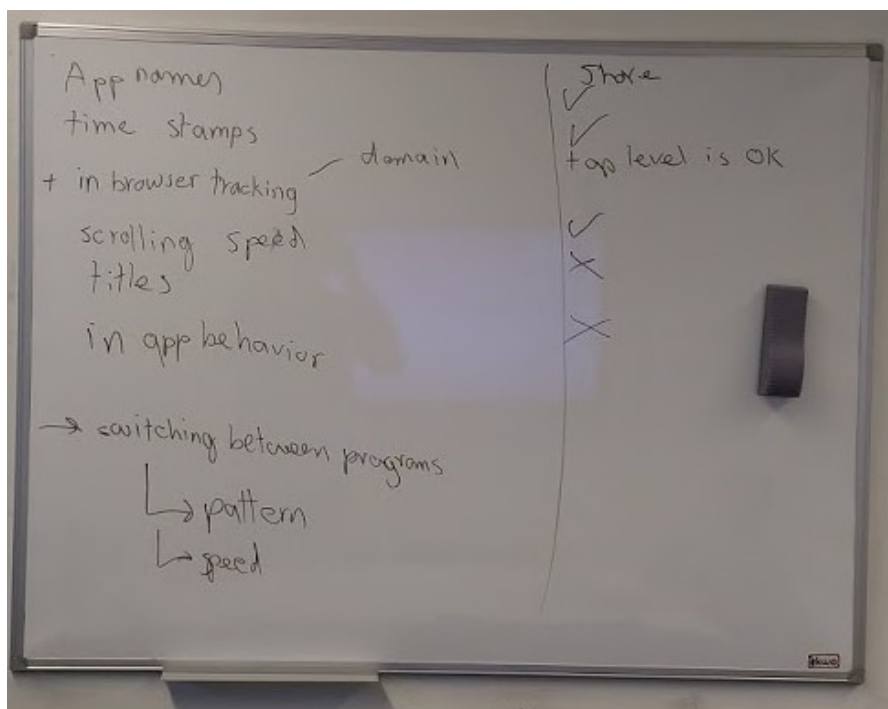 App names
time stamps
+ in browser tracking – domain
scrolling speed
titles
in app behavior
→ switching between programs
↳ pattern
↳ speed
Share
✓
✓
top level is OK
✓
✗
✗